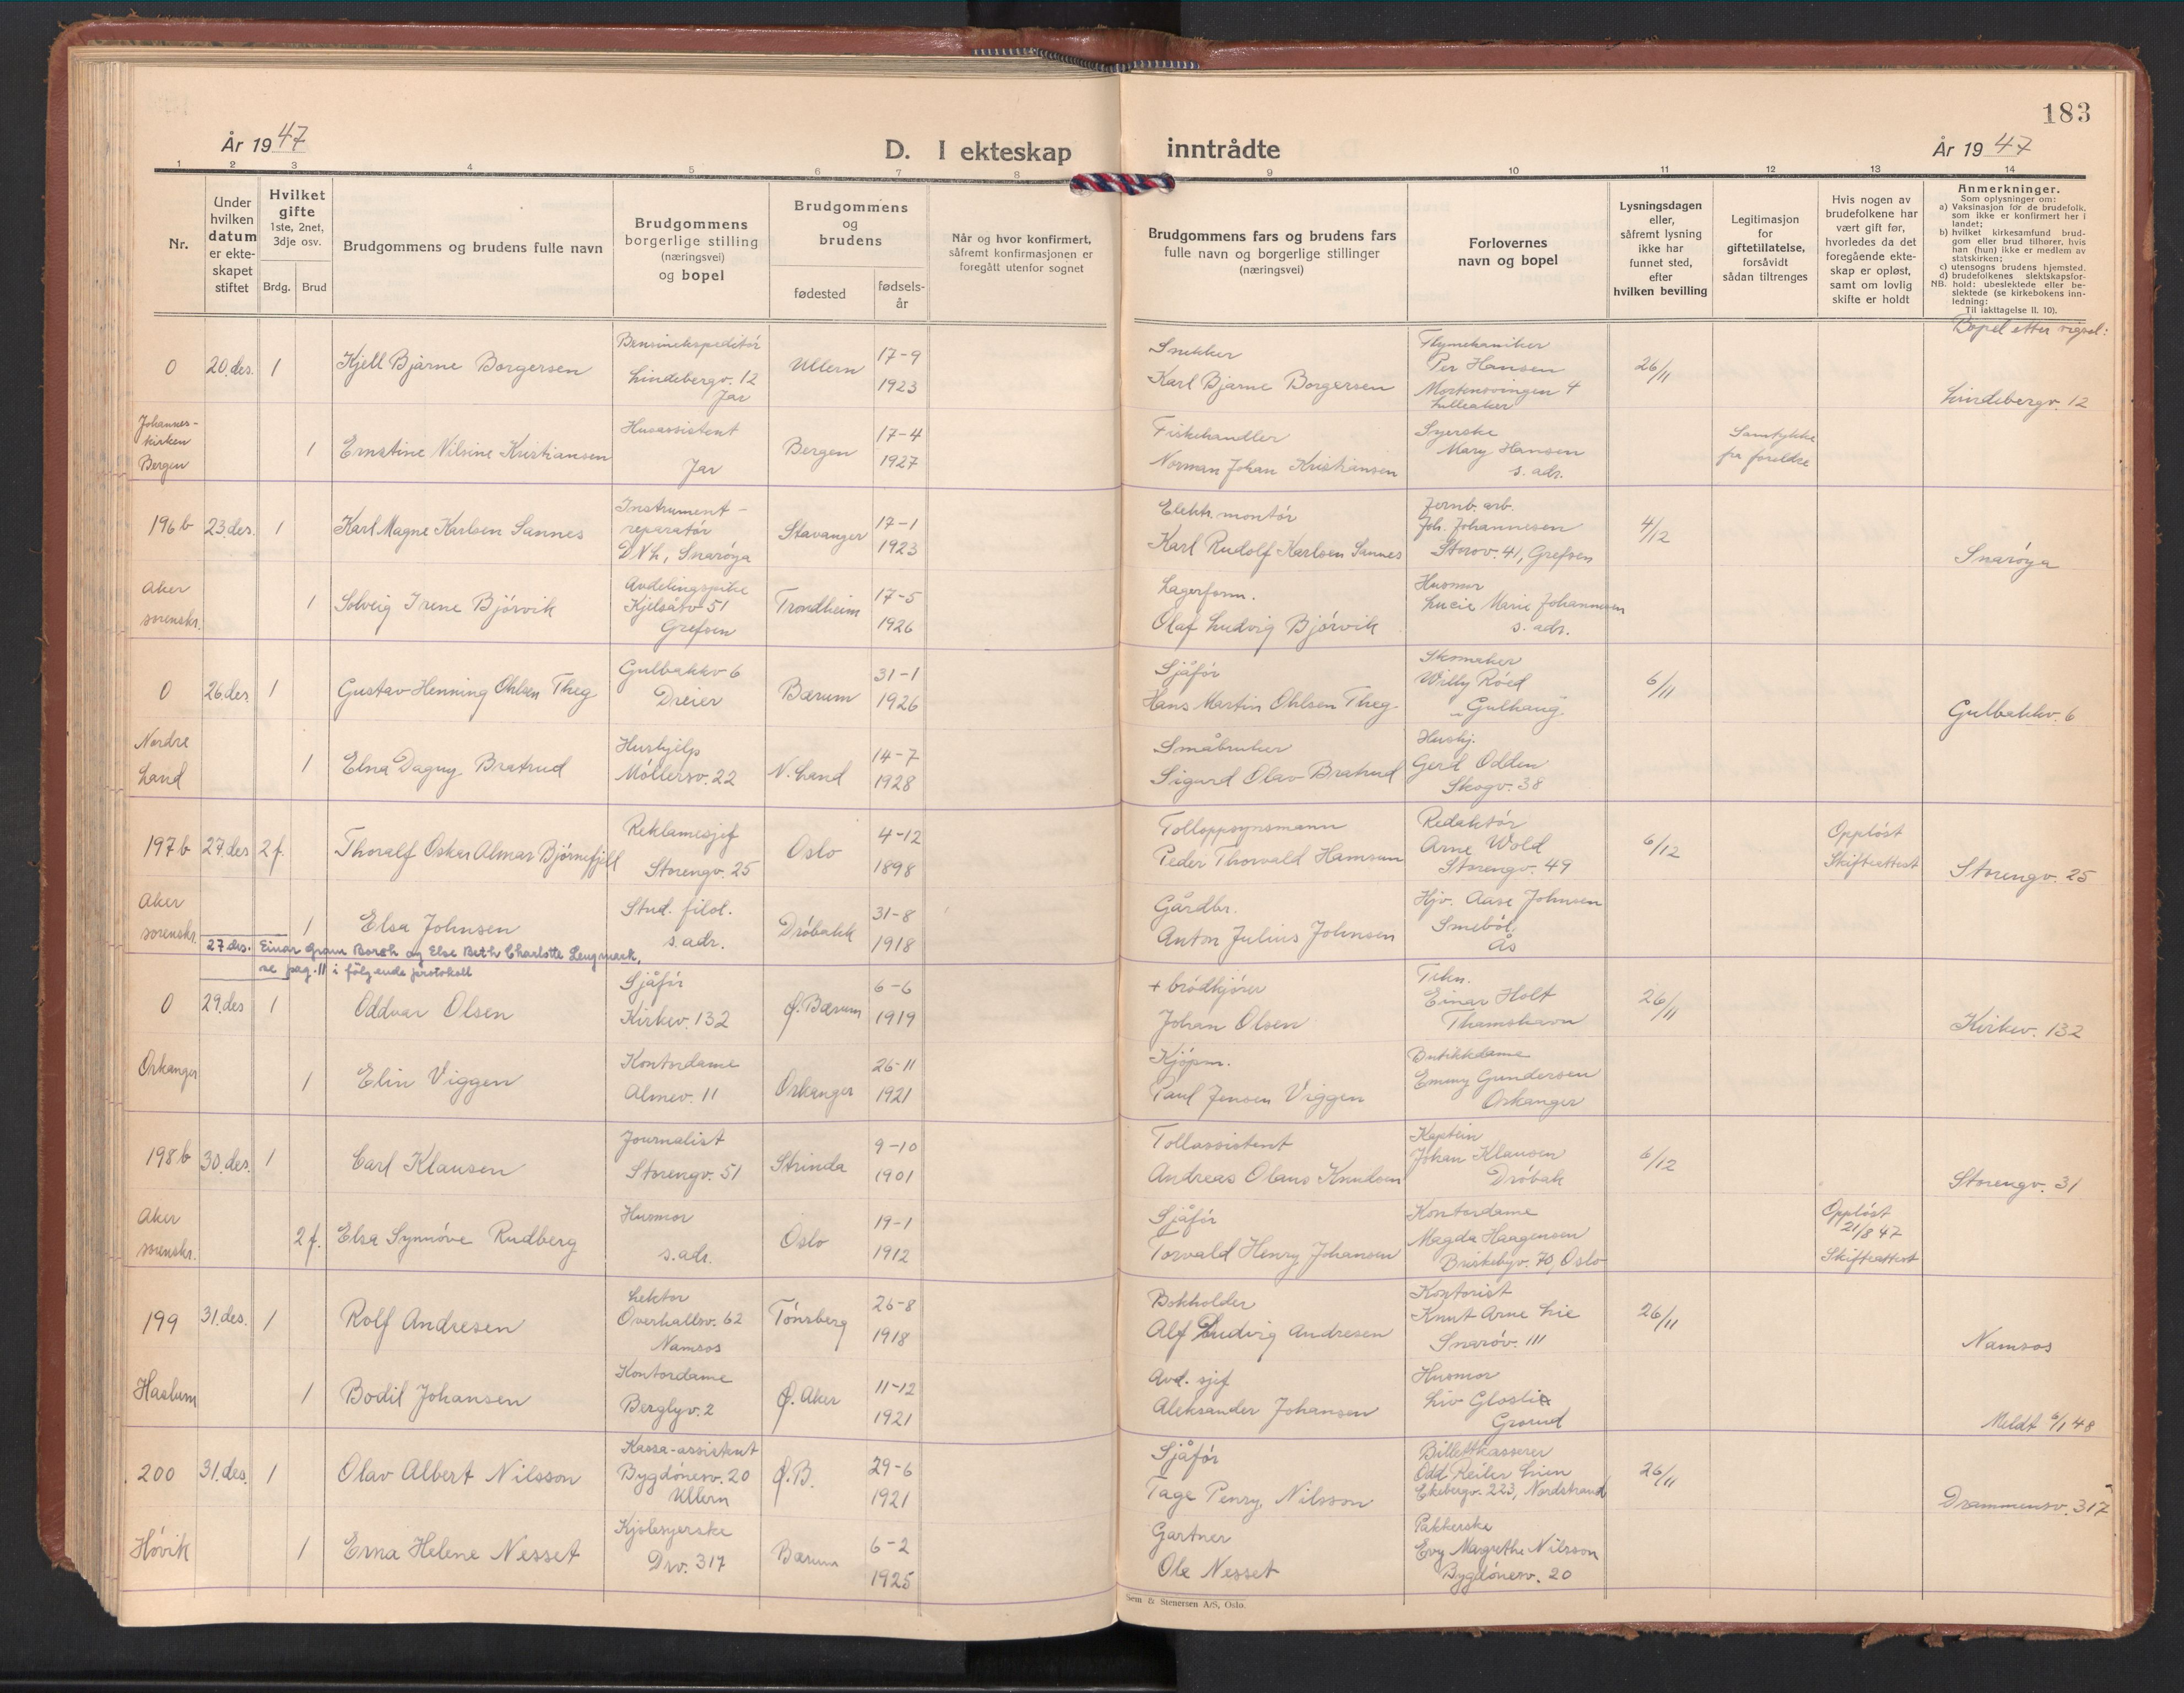 183
År 1947
D. I ekteskap inntrådte
År 1947
1 2 3 4 5 6 7 8 9 10 11 12 13 14
Nr.
Under hvilken datum er ekte-skapet stiftet
Hvilket gifte 1ste, 2net, 3dje osv.
Brdg. Brud
Brudgommens og brudens fulle navn
Brudgommens borgerlige stilling (næringsvei) og bopel
Brudgommens og brudens
fødested
fødsels-år
Når og hvor konfirmert, såfremt konfirmasjonen er foregått utenfor sognet
Brudgommens fars og brudens fars fulle navn og borgerlige stillinger (næringsvei)
Forlovernes navn og bopel
Lysningsdagen eller, såfremt lysning ikke har funnet sted, efter hvilken bevilling
Legitimasjon for giftetillatelse, forsåvidt sådan tiltrenges
Hvis nogen av brudefolkene har vært gift før, hvorledes da det foregående ekte-skap er opløst, samt om lovlig skifte er holdt
Anmerkninger.
Som oplysninger om:
a) Vaksinasjon for de brudefolk, som ikke er konfirmert her i landet;
b) hvilket kirkesamfund brud-gom eller brud tilhører, hvis han (hun) ikke er medlem av statskirken;
c) utensogns brudens hjemsted.
d) brudefolkenes slektskapsfor-hold: ubeslektede eller be-slektede (se kirkebokens inn-ledning:
NB.
Til iakttagelse II. 10).
Bopel etter vigsel:
0 20.des. 1 Kjell Bjarne Borgersen
Bensinekspeditör
Lindebergv. 12
Jar
Ullern
17-9
1923
Snekker
Karl Bjarne Borgersen
Flymekaniker
Per Hansen
Mortensvingen 4
Lilleaker
26/11
Lindebergv. 12
Johannes-
kirken
Bergen
1 Ernstine Nilsine Kristiansen
Husassistent
Jar
Bergen
17-4
1927
Fiskehandler
Norman Johan Kristiansen
Syerske
Mary Hansen
s. adr.
Samtykke
fra foreldre
196b 23.des. 1 Karl Magne Karlsen Sannes
Instrument-
reparatör
DNL, Snaröya
Stavanger
17-1
1923
Elektr. montör
Karl Rudolf Karlsen Sannes
Jernb. arb.
Joh. Johannesen
Storov. 41, Grefsen
4/12
Snaröya
Aker
sorenskr.
1 Solveig Irene Björvik
Avdelingspike
Kjelsåsv 51
Grefsen
Trondheim
17-5
1926
Lagerform.
Olaf Ludvig Björvik
Husmor
Lucie Marie Johannesen
s. adr.
0 26.des. 1 Gustav Henning Ohlsen Theg
Gulbakkv 6
Dreier
Bærum
31-1
1926
Sjåför
Hans Martin Ohlsen Theg
Skomaker
Willy Röed
"Gulhaug"
6/11
Gulbakkv. 6
Nordre
Land
1 Elna Dagny Bratrud
Hushjelp
Möllersv. 22
N. Land
14-7
1928
Småbruker
Sigurd Olav Bratrud
Hushj.
Gerd Odden
Skogv. 38
197b 27.des 2f. Thoralf Oskar Almar Björnefjell
Reklamesjef
Storengv. 25
Oslo
4-12
1898
Tolloppsynsmann
Peder Thorvald Hamsun
Redaktör
Arne Wold
Storengv. 49
6/12
Opplöst
Skifteattest
Storengv. 25
Aker
sorenskr.
1 Elsa Johnsen
Stud. filol.
s. adr.
Dröbakk
31-8
1918
Gårdbr.
Anton Julius Johnsen
Hjv. Aase Johnsen
Smeböl,
Ås
27 des. Einar Gram Borch og Else Beth Charlotte Lengmark,
se pag. 11 i fölgende protokoll
0 29.des 1 Oddvar Olsen
Sjåför
Kirkev. 132
Ø. Bærum
6-6
1919
+ brödkjörer
Johan Olsen
Tekn.
Einar Holt
Thamshavn
26/11
Kirkev. 132
Orkanger
1 Elin Viggen
Kontordame
Almev. 11
Orkanger
26-11
1921
Kjöpm.
Paul Jensen Viggen
Butikkdame
Emmy Gundersen
Orkanger
198b 30.des. 1 Carl Klausen
Journalist
Storengv. 51
Strinda
9-10
1901
Tollassistent
Andreas Olaus Knudsen
Kaptein
Johan Klausen
Dröbak
6/12
Storengv. 31
Aker
sorenskr.
2f. Elsa Synnöve Rudberg
Husmor
s. adr.
Oslo
19-1
1912
Sjåför
Torvald Henry Johansen
Kontordame
Magda Haagensen
Briskebyv. 70, Oslo
Opplöst
21/8 47
Skifteattest
199 31.des. 1 Rolf Andresen
Lektor
Overhallsv. 62
Namsos
Tönsberg
26-8
1918
Bokholder
Alf Ludvig Andresen
Kontorist
Knut Arne Lie
Snaröv. 111
26/11
Namsos
Haslum
1 Bodil Johansen
Kontordame
Berglyv. 2
Ø. Aker
11-12
1921
Avd. sjef
Aleksander Johansen
Husmor
Liv Glosli
Grorud
Meldt 6/1 48
200 31.des. 1 Olav Albert Nilsson
Kassa-assistent
Bygdönesv. 20
Ullern
Ø.B.
29-6
1921
Sjåför
Tage Penry Nilsson
Billettkasserer
Odd Reiler Lien
Ekebergv. 223, Nordstrand
26/11
Drammensv. 317
Hövik
1 Erna Helene Nesset
Kjolesyerske
Drv. 317
Bærum
6-2
1925
Gartner
Ole Nesset
Pakkerske
Evy Margrethe Nilsson
Bygdönesv. 20
Sem & Stenersen A/S, Oslo.